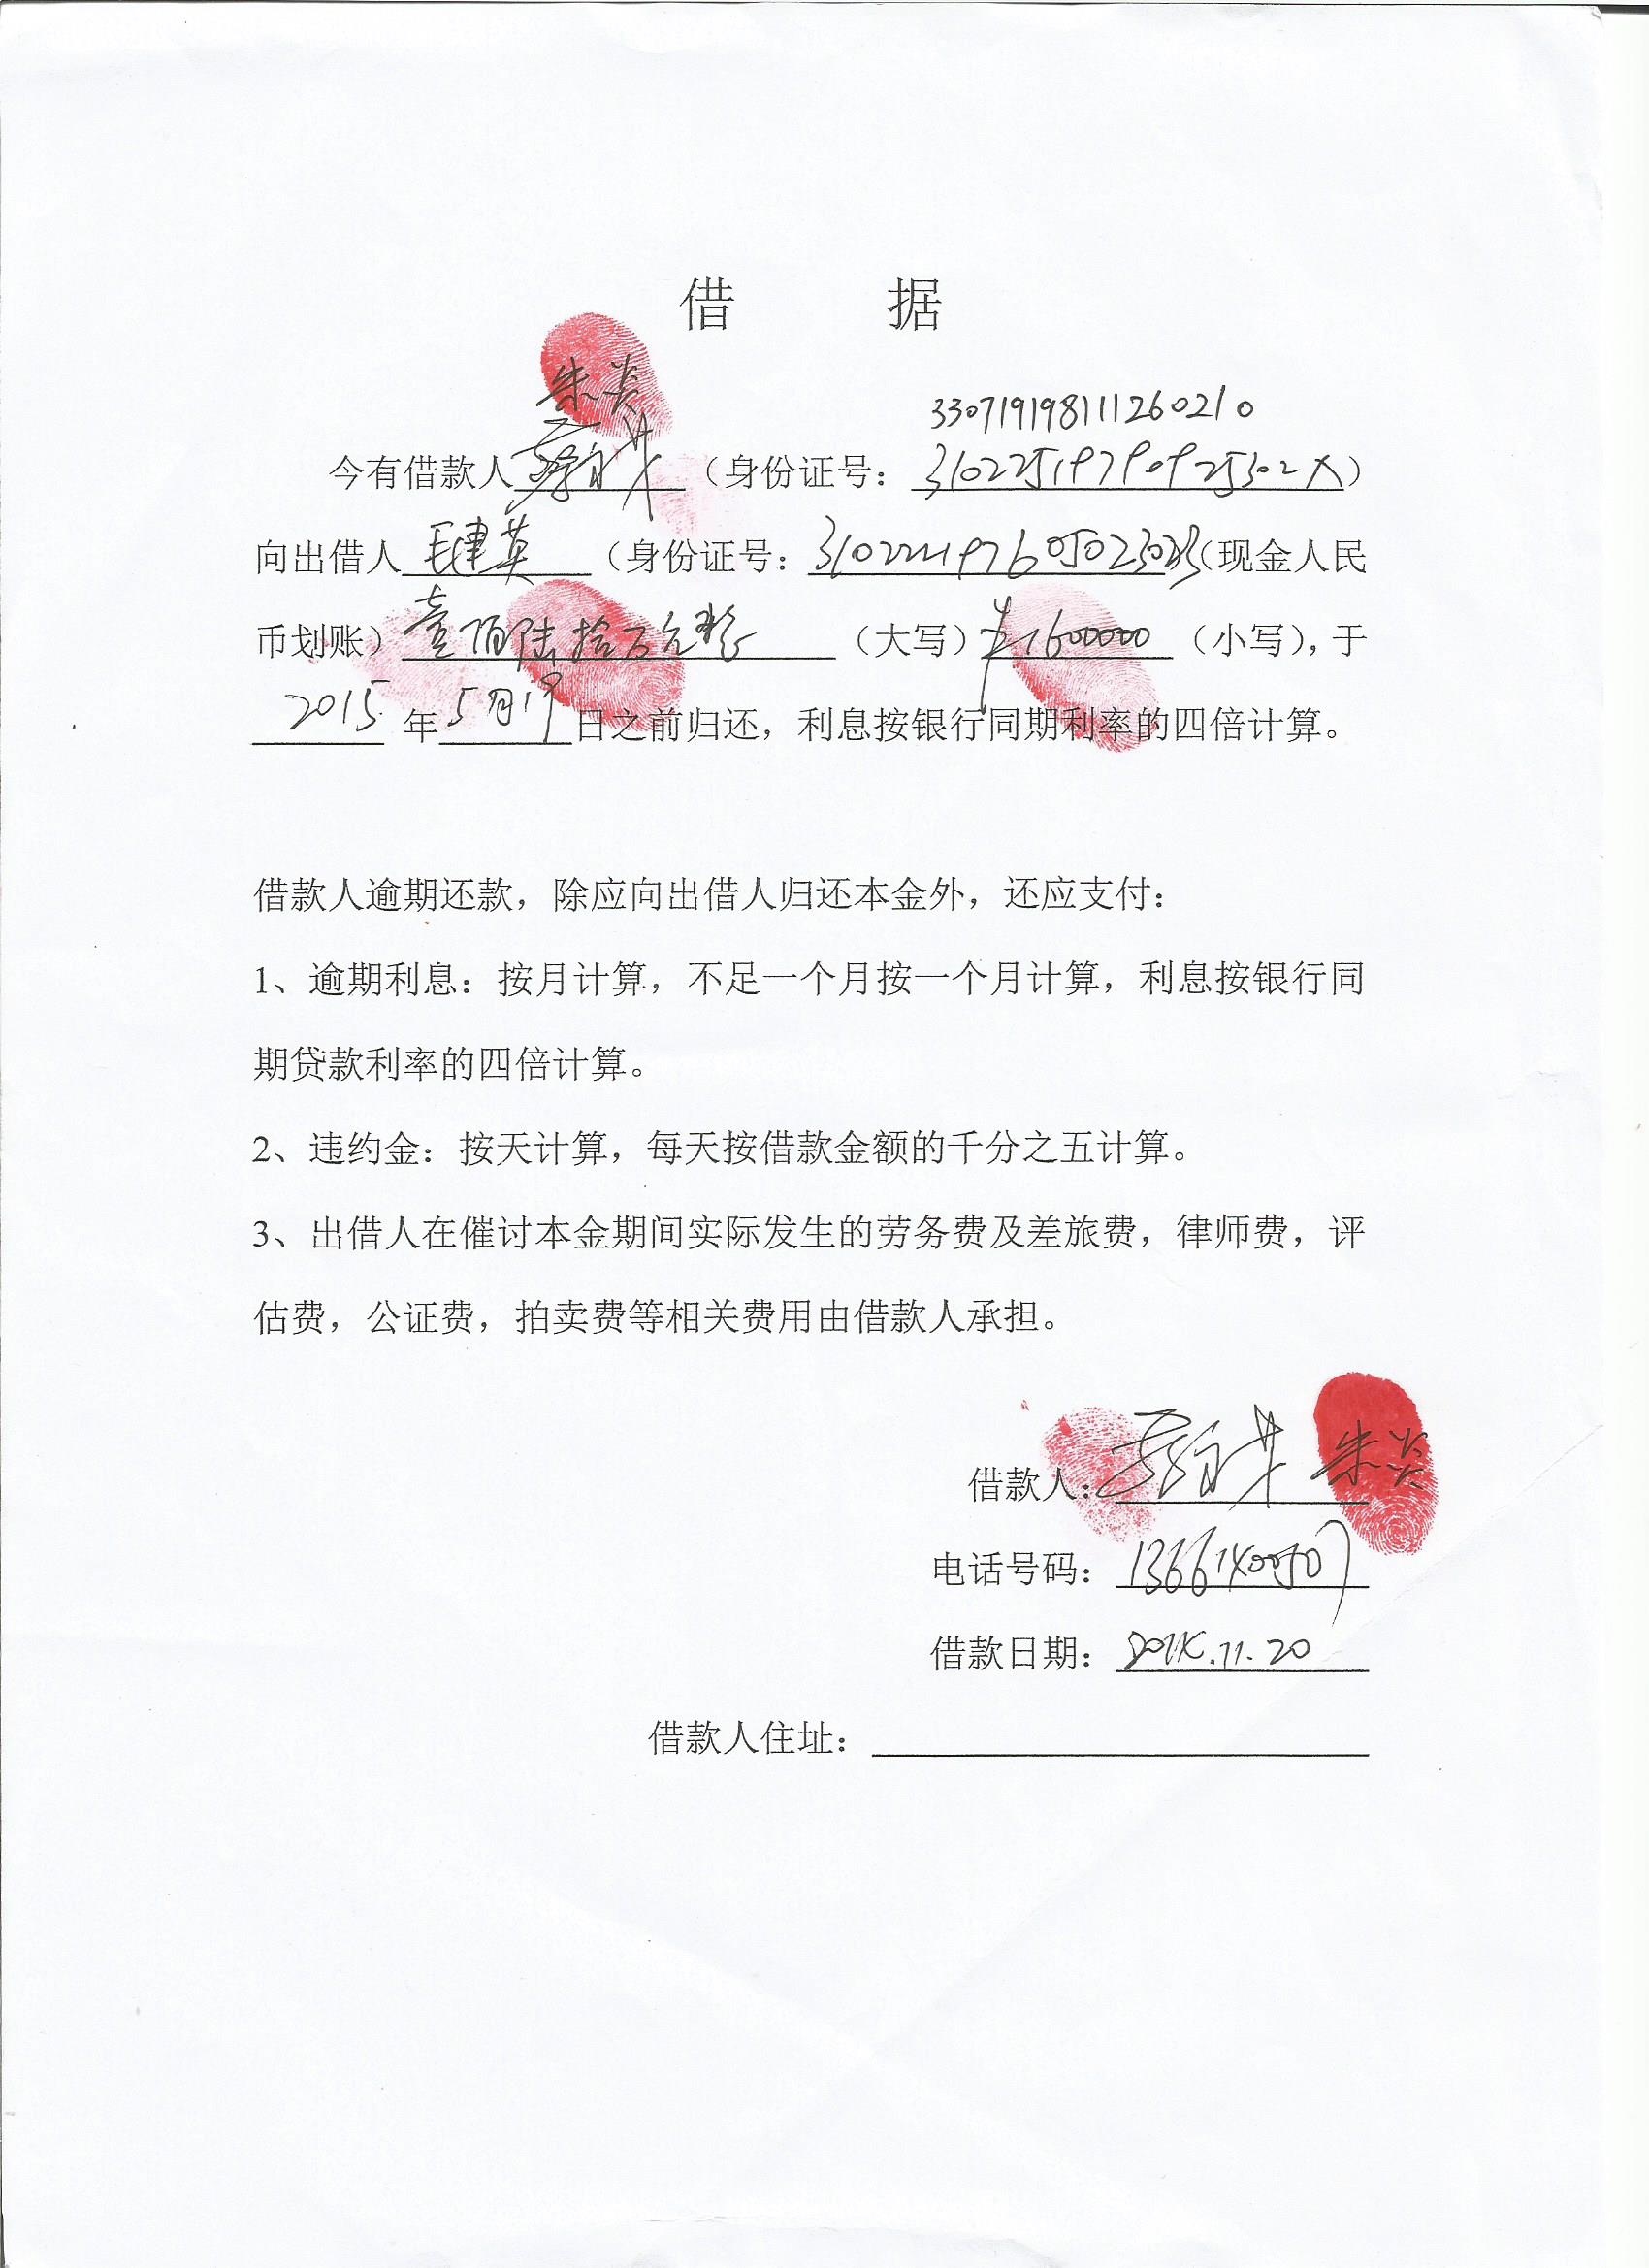 借 据
朱炎
330719198111260210
今有借款人（身份证号：）
向出借人毛建英（身份证号：（现金人民
币划账）壹佰陆拾万元整（大写）1600000（小写），于
2015年5月19日之前归还，利息按银行同期利率的四倍计算。
借款人逾期还款，除应向出借人归还本金外，还应支付：
1、逾期利息：按月计算，不足一个月按一个月计算，利息按银行同
期贷款利率的四倍计算。
2、违约金：按天计算，每天按借款金额的千分之五计算。
3、出借人在催讨本金期间实际发生的劳务费及差旅费，律师费，评
估费，公证费，拍卖费等相关费用由借款人承担。
借款人：朱炎
电话号码：
借款日期：2014.11.20
借款人住址：